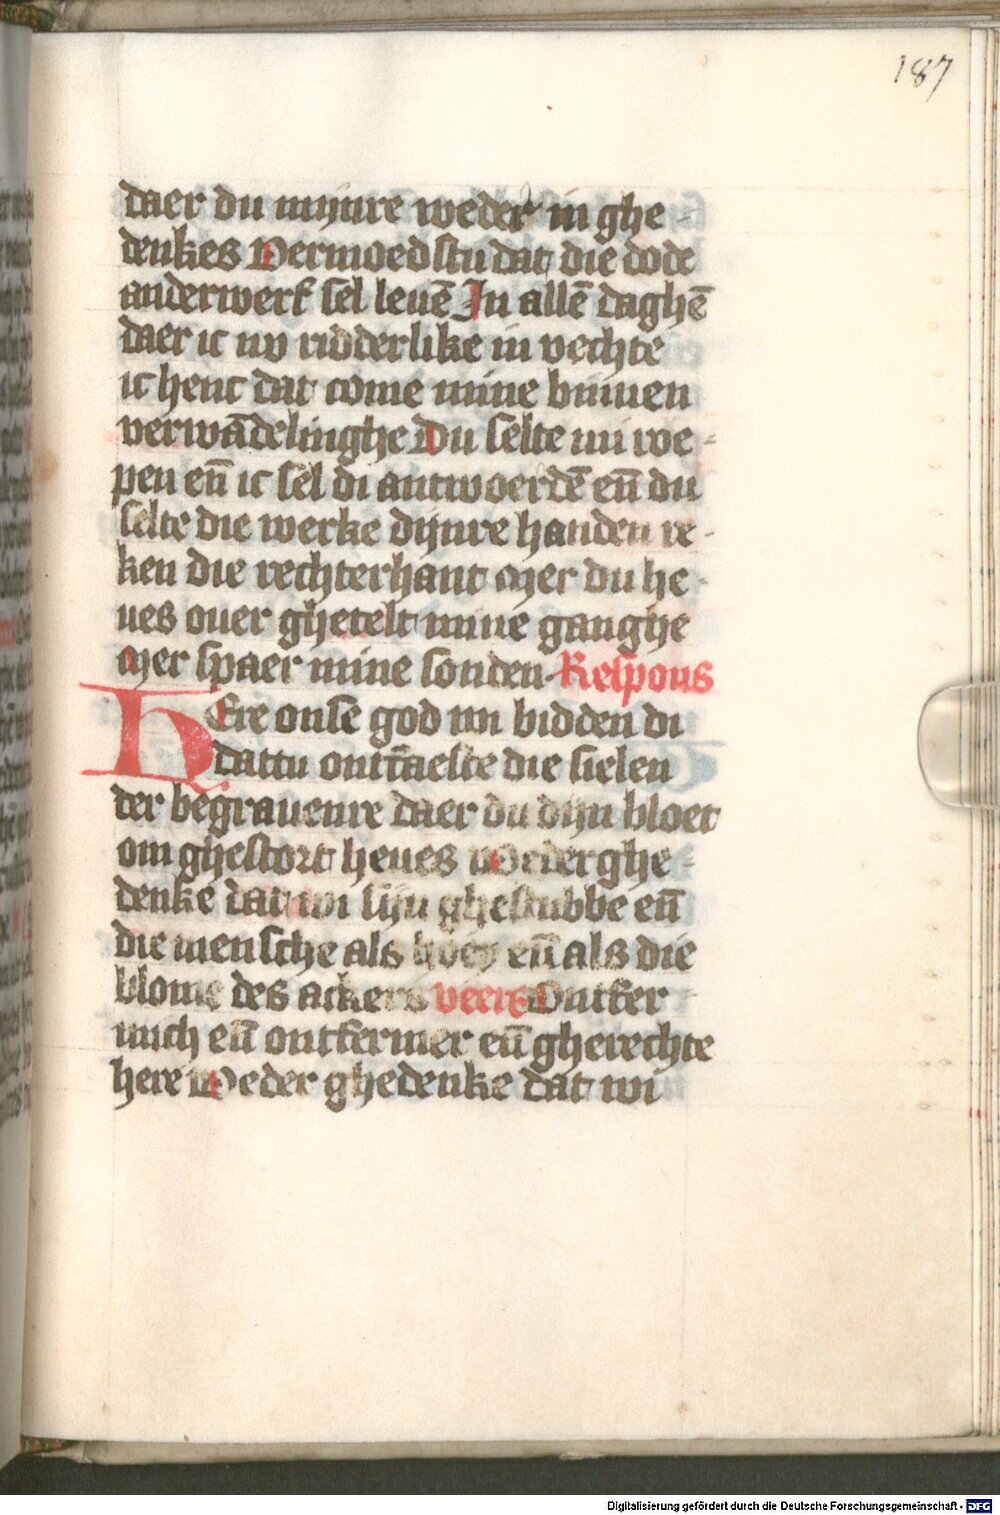 187
daer du mijnre weder in ghe-
denkes Vermoedstu dat die dode
anderwerf sel leuē In allē daghē
daer ic nv ridderlike in vechte
ic hent dat come mine binnen
verwādelinghe Du selte mi roe-
pen eñ ic sel di antwoerdē eñ du
selte die werke dijnre handen re-
ken die rechterhant Mer du he-
ues ouer ghetelt mine ganghe
Mer spaer mine sonden Respons
HEre onse god wi bidden di
dattu ontfaeste die sielen
der begrauenre daer du dijn bloet
om ghestort heues Weder ghe-
denke dat wi sijn ghestubbe eñ
die mensche als hoey eñ als die
blome des ackers veers Ontfer-
mich eñ ontfermer eñ gherechte
here Weder ghedenke dat wi
Digitalisierung gefördert durch die Deutsche Forschungsgemeinschaft - DFG